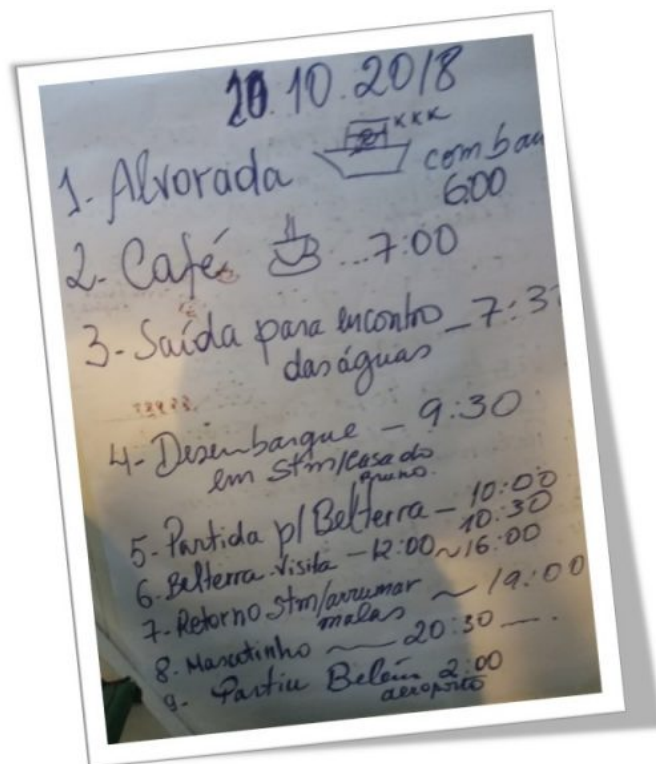 10.2018
1. Alvorada KKK com bau
6:00
2. Café ... 7:00
3. Saída para encontro - 7:3
das águas
4. Desembarque - 9:30
em Stm/Casa do
Bruno.
5. Partida p/ Belterra - 10:00
10:30
6. Belterra - Visita - 12:00 ~ 16:00
7. Retorno Stm/arrumar ~ 19:00
malas
8. Mascotinho — 20:30 — .
9. Partiu Belém 2:00
aeroporto